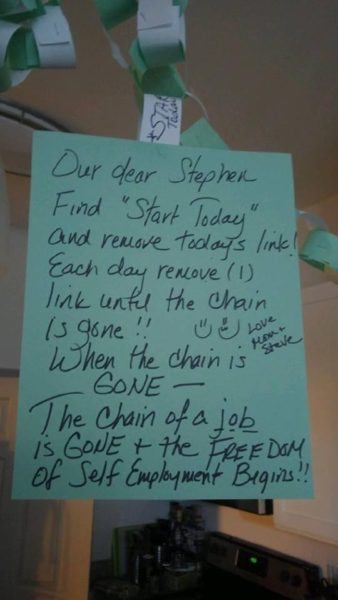 START
Today
Our dear Stephen
Find "Start Today"
and remove today's link!
Each day remove (1)
link until the chain
is gone !!
Love
Mom +
Steve
When the chain is
— GONE —
The Chain of a job
is GONE + the FREEDOM
of Self Employment Begins!!